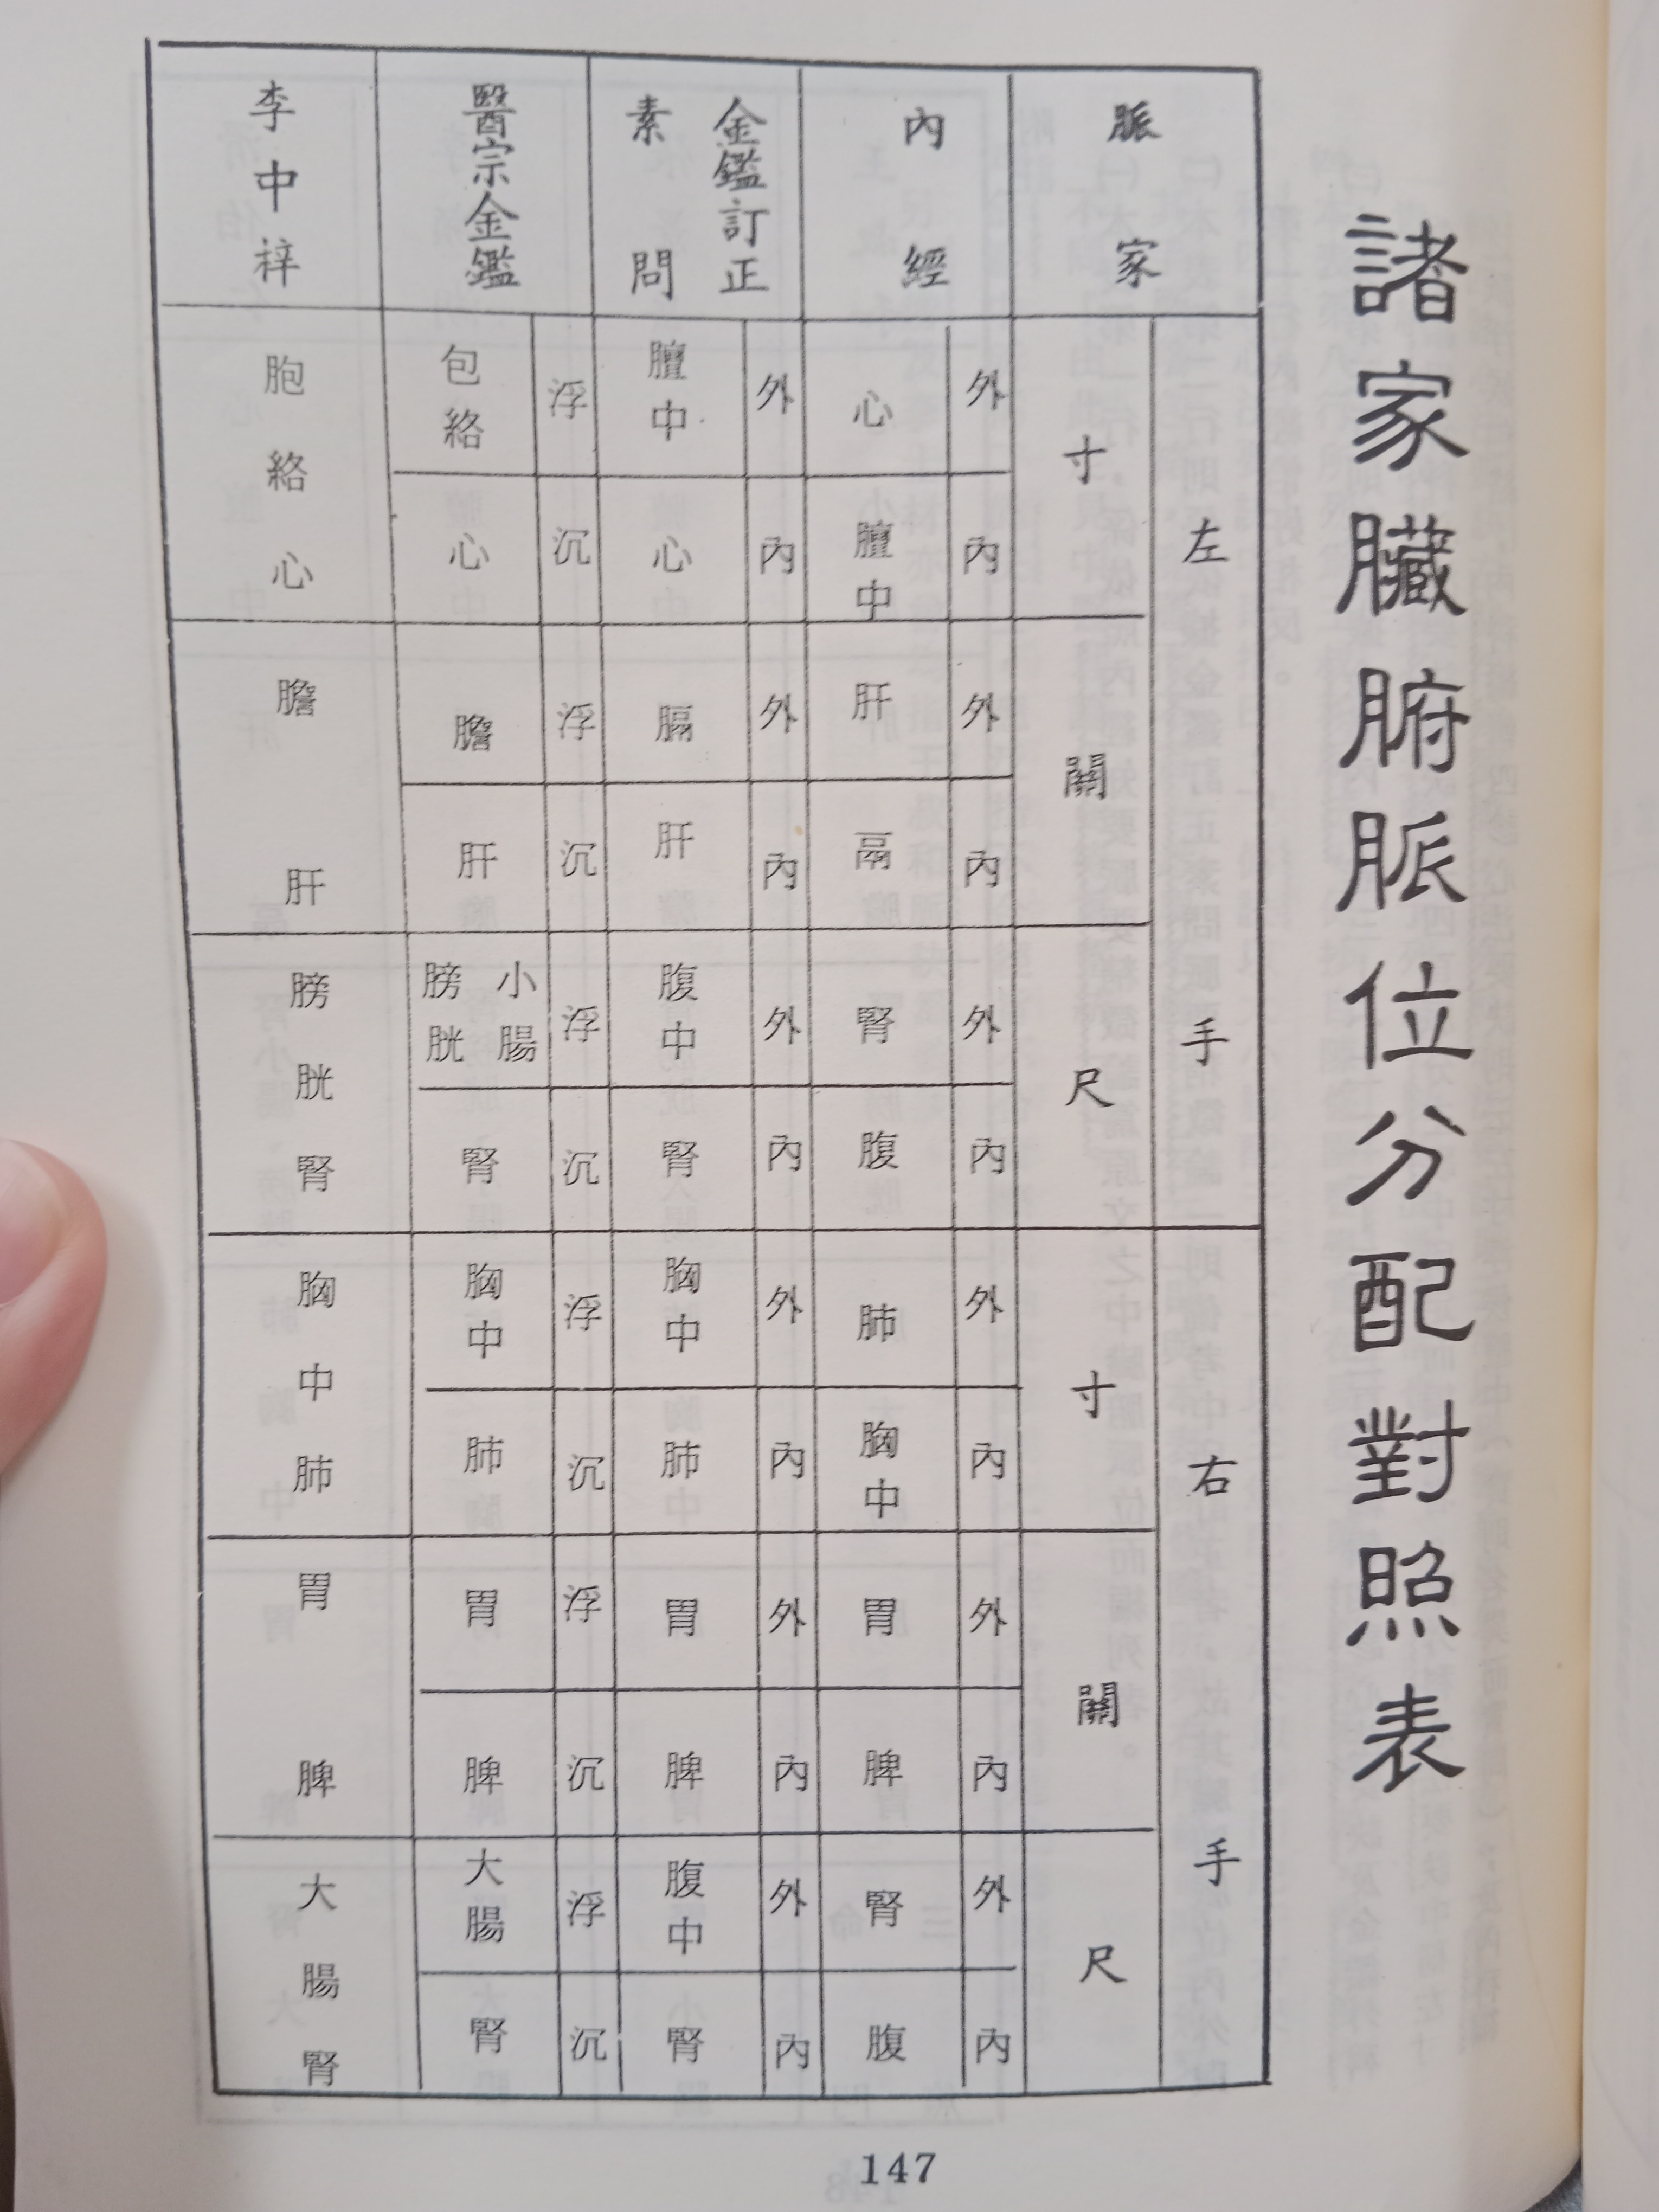 諸家臟腑脈位分配對照表
脈家
左手
右手
寸
關
尺
寸
關
尺
內經
外 心
內 膻中
外 肝
內 鬲
外 腎
內 腹
外 肺
內 胸中
外 胃
內 脾
外 腎
內 腹
金鑑訂正
素問
外 膻中
內 心
外 膈
內 肝
外 腹中
內 腎
外 胸中
內 肺
外 胃
內 脾
外 腹中
內 腎
醫宗金鑑
浮 包絡
沉 心
浮 膽
沉 肝
浮 小腸
膀胱
沉 腎
浮 胸中
沉 肺
浮 胃
沉 脾
浮 大腸
沉 腎
李中梓
胞絡心
膽肝
膀胱腎
胸中肺
胃脾
大腸腎
147